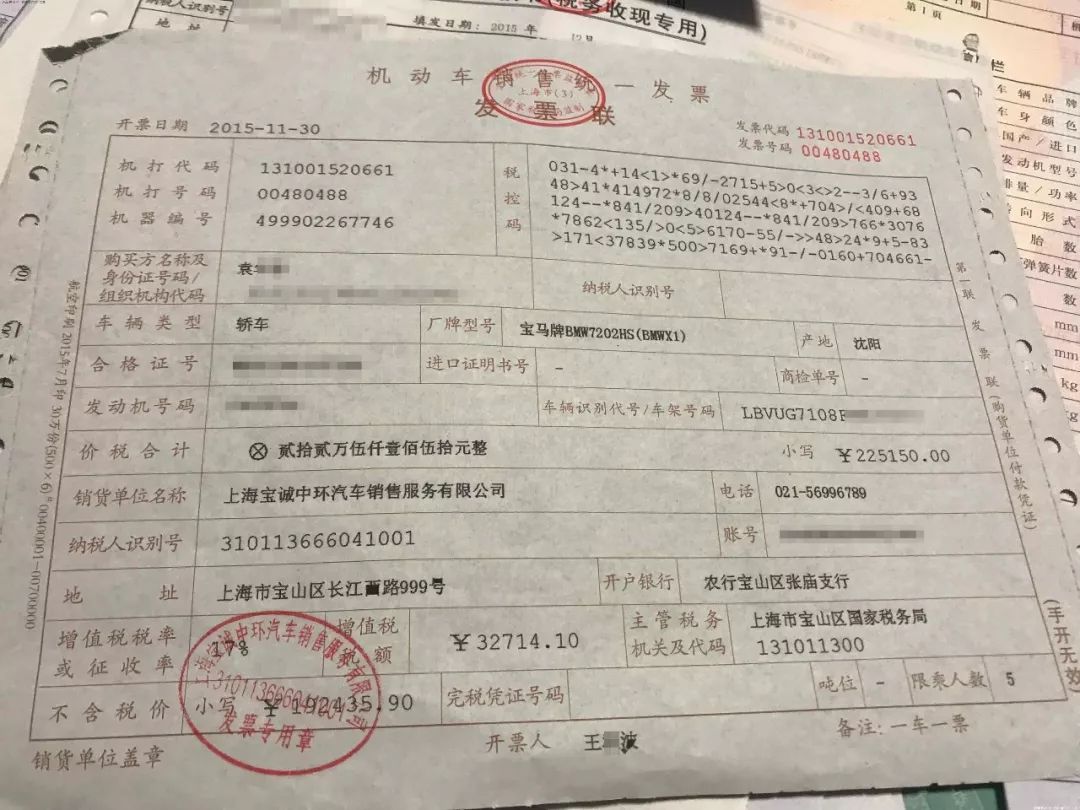 纳税人识别号
(税务收现专用)
地 址
填发日期: 2015 年 12月
第1页
机动车销售统一发票
发票联
上海市(3)
开票日期 2015-11-30
发票代码 131001520661
发票号码 00480488
机打代码 131001520661
机打号码 00480488
机器编号 499902267746
税控码
031-4*+14<1>*69/-2715+5>0<3<>2--3/6+93
48>41*414972*8/8/02544<8*+704>/<409+68
124--*841/209>40124--*841/209>766*3076
*7862<135/>0<5>6170-55/->>48>24*9+5-83
>171<37839*500>7169+*91-/-0160+704661-
购买方名称及
身份证号码/
组织机构代码
袁
纳税人识别号
车辆类型 轿车 厂牌型号 宝马牌BMW7202HS(BMWX1) 产地 沈阳
合格证号 进口证明书号 - 商检单号 -
发动机号码 车辆识别代号/车架号码 LBVUG7108
价税合计 ⊗ 贰拾贰万伍仟壹佰伍拾元整 小写 ¥225150.00
销货单位名称 上海宝诚中环汽车销售服务有限公司 电话 021-56996789
纳税人识别号 310113666041001 账号
地 址 上海市宝山区长江西路999号 开户银行 农行宝山区张庙支行
增值税税率
或征收率
17%
增值税
税额
¥32714.10
主管税务
机关及代码
上海市宝山区国家税务局
131011300
不含税价 小写 ¥192435.90 完税凭证号码 吨位 - 限乘人数 5
上海宝诚中环汽车销售服务有限公司
310113666041001
发票专用章
销货单位盖章 开票人 王 波 备注:一车一票
第一联 发票联(购货单位付款凭证)
(手开无效)
航空印刷 2015年7月印 30万份(500×6)*00400001-00700000
栏
车辆品牌
车身颜色
国产/进口
发动机型号
排量/功率
转向形式
胎数
弹簧片数
数
mm
mm
kg
kg